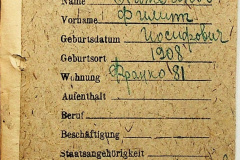 Name
Vorname Филипп
Geburtsdatum Иосифович
Geburtsort 1908
Wohnung Франко 81
Aufenthalt
Beruf
Beschäftigung
Staatsangehörigkeit